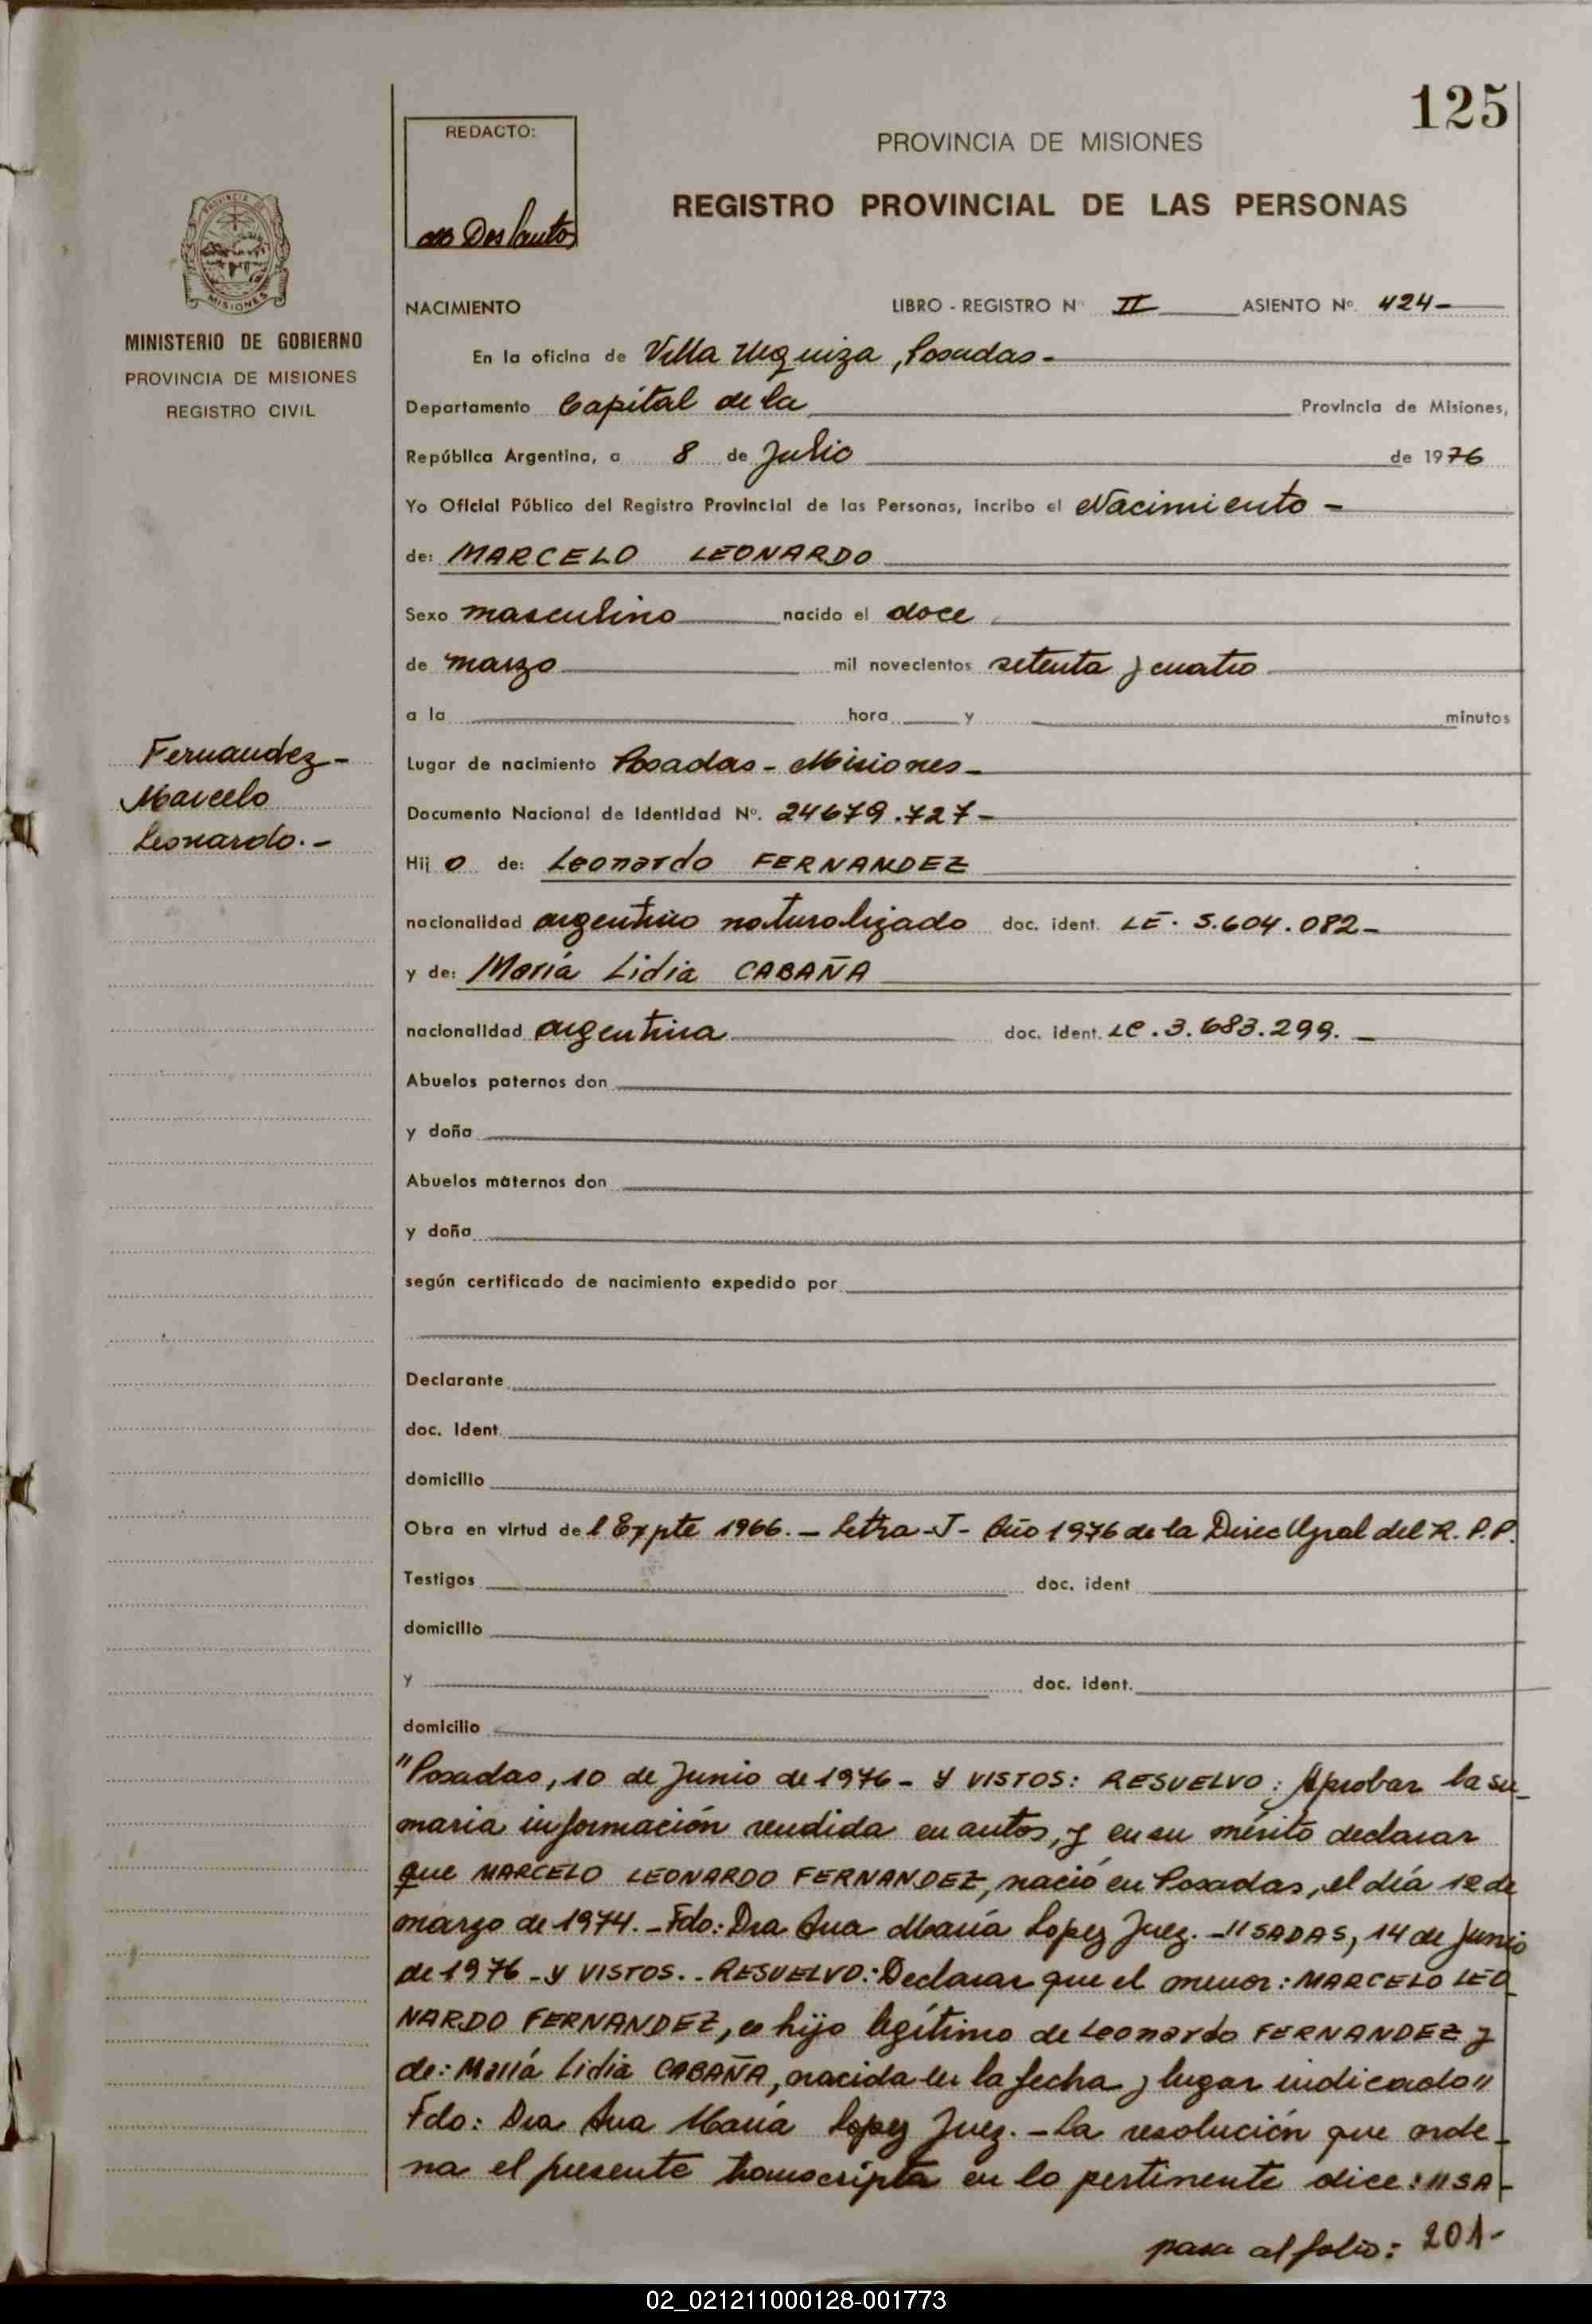 125
REDACTO:
PROVINCIA DE MISIONES
REGISTRO PROVINCIAL DE LAS PERSONAS
PROVINCIA DE
MISIONES
MINISTERIO DE GOBIERNO
PROVINCIA DE MISIONES
REGISTRO CIVIL
NACIMIENTO LIBRO - REGISTRO Nº II ASIENTO Nº 424-
En la oficina de Villa Urquiza, Posadas-
Departamento Capital de la Provincia de Misiones,
República Argentina, a 8 de Julio de 1976
Yo Oficial Público del Registro Provincial de las Personas, incribo el Nacimiento -
de: MARCELO LEONARDO
Sexo masculino nacido el doce
de marzo mil novecientos setenta y cuatro
a la hora y minutos
Fernandez-
Marcelo
Leonardo.-
Lugar de nacimiento Posadas - Misiones-
Documento Nacional de Identidad Nº. 24679.727-
Hij o de: Leonardo FERNANDEZ
nacionalidad argentino naturalizado doc. ident. LE. 5.604.082-
y de: María Lidia CABAÑA
nacionalidad argentina doc. ident. LC.3.683.299.-
Abuelos paternos don
y doña
Abuelos maternos don
y doña
según certificado de nacimiento expedido por
Declarante
doc. Ident
domicilio
Obra en virtud de l Expte 1966.- Letra-J- Año 1976 de la Direc Gral del R.P.P.
Testigos doc. ident
domicilio
y doc. ident.
domicilio
"Posadas, 10 de Junio de 1976- Y VISTOS: RESUELVO: Aprobar la su-
maria información rendida en autos, y en su mérito declarar
que MARCELO LEONARDO FERNANDEZ, nació en Posadas, el día 12 de
marzo de 1974.-Fdo: Dra Ana María Lopez Juez.-"SADAS, 14 de Junio
de 1976-Y VISTOS.-RESUELVO: Declarar que el menor: MARCELO LEO
NARDO FERNANDEZ, es hijo legítimo de Leonardo FERNANDEZ y
de: María Lidia CABAÑA, nacida en la fecha y lugar indicado"
Fdo: Dra Ana María Lopez Juez.-La resolución que orde-
na el presente transcripta en lo pertinente dice: "SA-
pasa al folio: 201-
02_021211000128-001773